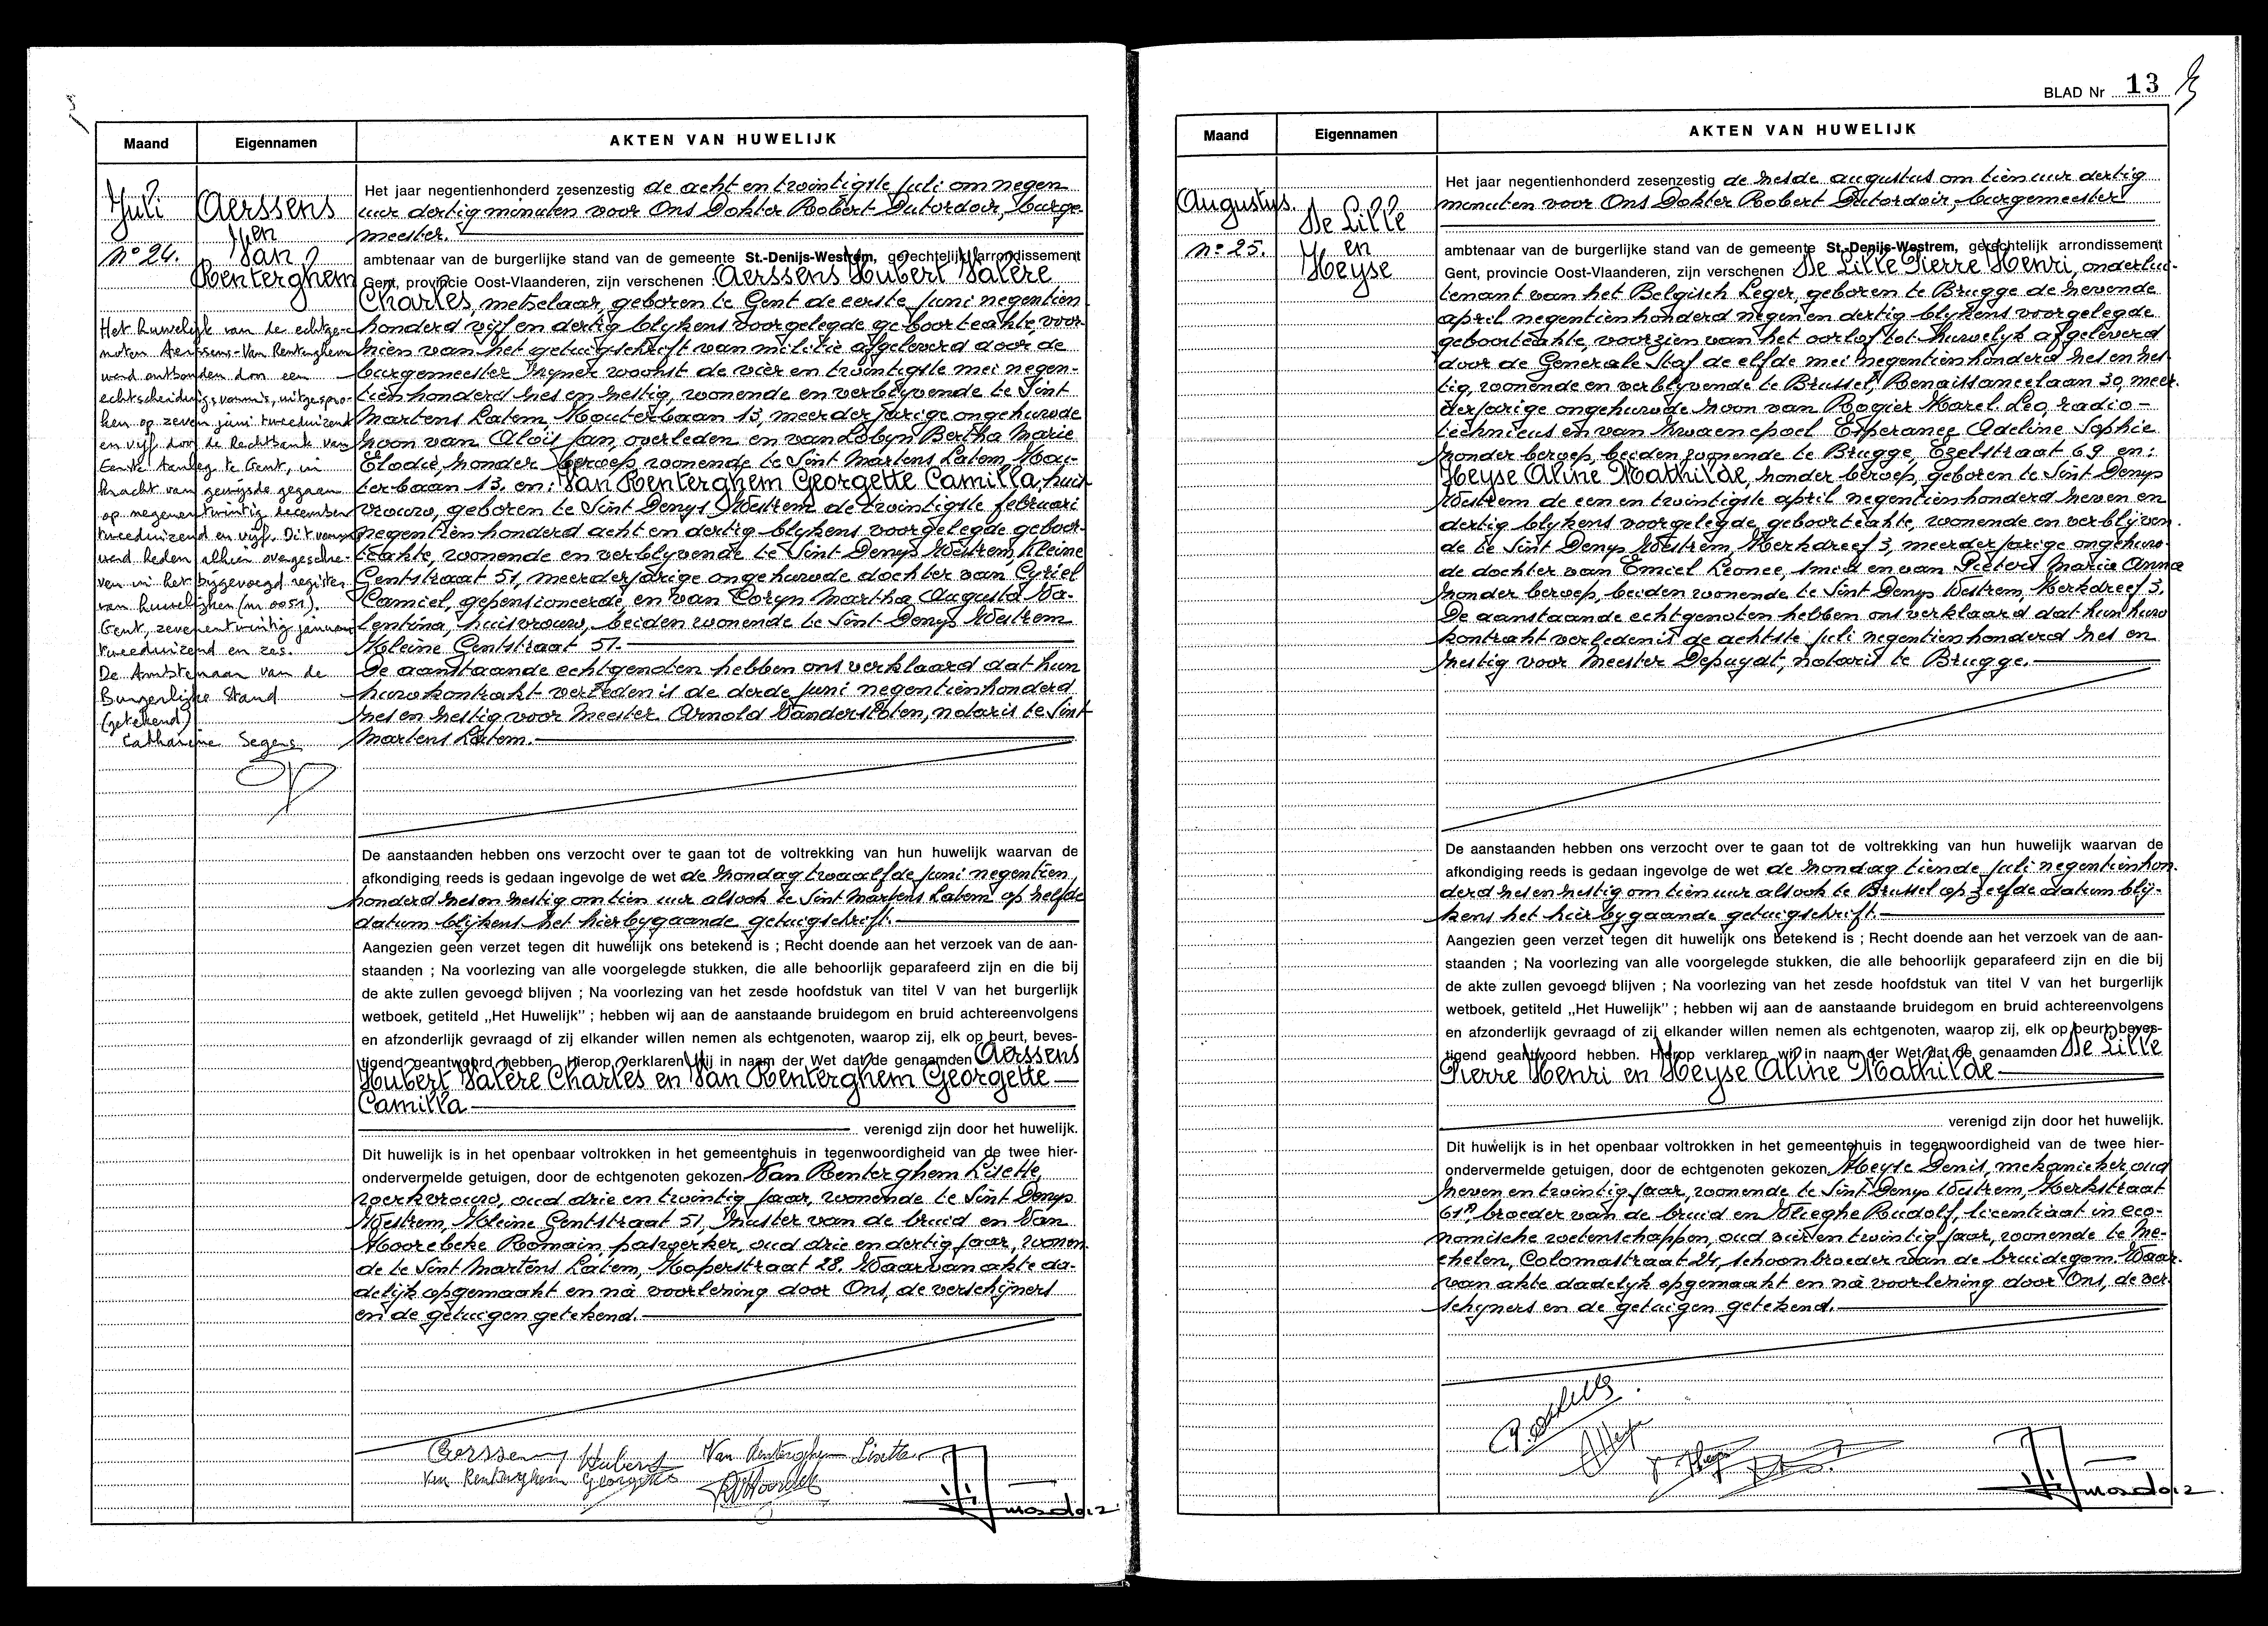 Maand
Eigennamen
AKTEN VAN HUWELIJK
Juli
Aerssens
en
Van
Renterghem
n° 24.
Het huwelijk van de echtge-
noten Aerssens-Van Renterghem
werd ontbonden door een
echtscheidingsvonnis, uitgespro-
ken op zeven juni tweeduizend
en vijf door de Rechtbank van
Eerste Aanleg te Gent, in
kracht van gewijsde gegaan
op negenentwintig december
tweeduizend en vijf. Dit vonnis
werd heden alhier overgeschre-
ven in het bijgevoegd register
van huwelijken (nr. 0051).
Gent, zevenentwintig januari
tweeduizend en zes.
De Ambtenaar van de
Burgerlijke Stand
(getekend)
Catharine Segers
Het jaar negentienhonderd zesenzestig de acht en twintigste juli om negen
uur dertig minuten voor Ons Dokter Robert Dutordoir, burge-
meester.
ambtenaar van de burgerlijke stand van de gemeente St.-Denijs-Westrem, gerechtelijk arrondissement
Gent, provincie Oost-Vlaanderen, zijn verschenen : Aerssens Hubert Valère
Charles, metselaar, geboren te Gent de eerste juni negentien
honderd vijf en dertig blijkens voorgelegde geboorteakte, voor-
zien van het getuigschrift van militie afgeleverd door de
burgemeester zijner woonst de vier en twintigste mei negen-
tienhonderd zes en zestig, wonende en verblijvende te Sint
Martens Latem, Kouterbaan 13, meerderjarige ongehuwde
zoon van Aloïs Jan, overleden en van Lobyn Bertha Marie
Elodie, zonder beroep, wonende te Sint Martens Latem, Kou-
terbaan 13. en: Van Renterghem Georgette Camilla, huis
vrouw, geboren te Sint Denijs Westrem de twintigste februari
negentienhonderd acht en dertig blijkens voorgelegde geboor-
teakte, wonende en verblijvende te Sint Denijs Westrem, Kleine
Gentstraat 51, meerderjarige ongehuwde dochter van Cyriel
Camiel, gepensioneerde, en van Coryn Martha Augusta Va-
lentina, huisvrouw, beiden wonende te Sint Denijs Westrem
Kleine Gentstraat 51.
De aanstaande echtgenoten hebben ons verklaard dat hun
huwkontrakt verleden is de derde juni negentienhonderd
zes en zestig voor Meester Arnold Vanderstoten, notaris te Sint
Martens Latem.
De aanstaanden hebben ons verzocht over te gaan tot de voltrekking van hun huwelijk waarvan de
afkondiging reeds is gedaan ingevolge de wet de zondag twaalfde juni negentien
honderd zes en zestig om tien uur alsook te Sint Martens Latem op zelfde
datum blijkens het hierbijgaande getuigschrift.
Aangezien geen verzet tegen dit huwelijk ons betekend is ; Recht doende aan het verzoek van de aan-
staanden ; Na voorlezing van alle voorgelegde stukken, die alle behoorlijk geparafeerd zijn en die bij
de akte zullen gevoegd blijven ; Na voorlezing van het zesde hoofdstuk van titel V van het burgerlijk
wetboek, getiteld „Het Huwelijk" ; hebben wij aan de aanstaande bruidegom en bruid achtereenvolgens
en afzonderlijk gevraagd of zij elkander willen nemen als echtgenoten, waarop zij, elk op beurt, beves-
tigend geantwoord hebben. Hierop verklaren wij in naam der Wet dat de genaamden Aerssens
Hubert Valère Charles en Van Renterghem Georgette
Camilla
verenigd zijn door het huwelijk.
Dit huwelijk is in het openbaar voltrokken in het gemeentehuis in tegenwoordigheid van de twee hier-
ondervermelde getuigen, door de echtgenoten gekozen Van Renterghem Lisette,
werkvrouw, oud drie en twintig jaar, wonende te Sint Denijs
Westrem, Kleine Gentstraat 51, zuster van de bruid en Van
Hoorebeke Romain, paswerker, oud drie en dertig jaar, wonen
de te Sint Martens Latem, Koperstraat 28. Waarvan akte da-
delijk opgemaakt en na voorlezing door Ons, de verschijners
en de getuigen getekend.
Aerssens Hubert Van Renterghem Lisette
Van Renterghem Georgette
BLAD Nr 13
Maand
Eigennamen
AKTEN VAN HUWELIJK
Augustus.
De Lille
en
Heyse
n° 25.
Het jaar negentienhonderd zesenzestig de zesde augustus om tien uur dertig
minuten voor Ons Dokter Robert Dutordoir, burgemeester
ambtenaar van de burgerlijke stand van de gemeente St.-Denijs-Westrem, gerechtelijk arrondissement
Gent, provincie Oost-Vlaanderen, zijn verschenen De Lille Pierre Henri, onderlui-
tenant van het Belgisch Leger, geboren te Brugge de zevende
april negentienhonderd negen en dertig blijkens voorgelegde
geboorteakte, voorzien van het oorlof tot huwelijk afgeleverd
door de Generale Staf de elfde mei negentienhonderd zes en zes
tig, wonende en verblijvende te Brussel, Renaissancelaan 30, meer.
derjarige ongehuwde zoon van Rogier Karel Leo, radio-
technicus en van Zwaenepoel Esperance Adeline Sophie
zonder beroep, beiden wonende te Brugge, Ezelstraat 69 en:
Heyse Aline Mathilde, zonder beroep, geboren te Sint Denijs
Westrem de een en twintigste april negentienhonderd zeven en
dertig blijkens voorgelegde geboorteakte, wonende en verblijven.
de te Sint Denijs Westrem, Kerkdreef 3, meerderjarige ongehuw-
de dochter van Emiel Leonce, smid en van Pieters Maria Anna
zonder beroep, beiden wonende te Sint Denijs Westrem, Kerkdreef 3.
De aanstaande echtgenoten hebben ons verklaard dat hun huw
kontrakt verleden is de achtste juli negentienhonderd zes en
zestig voor Meester Depuydt, notaris te Brugge.
De aanstaanden hebben ons verzocht over te gaan tot de voltrekking van hun huwelijk waarvan de
afkondiging reeds is gedaan ingevolge de wet de zondag tiende juli negentienhon.
derd zes en zestig om tien uur alsook te Brussel op zelfde datum blij-
kens het hierbijgaande getuigschrift.
Aangezien geen verzet tegen dit huwelijk ons betekend is ; Recht doende aan het verzoek van de aan-
staanden ; Na voorlezing van alle voorgelegde stukken, die alle behoorlijk geparafeerd zijn en die bij
de akte zullen gevoegd blijven ; Na voorlezing van het zesde hoofdstuk van titel V van het burgerlijk
wetboek, getiteld „Het Huwelijk" ; hebben wij aan de aanstaande bruidegom en bruid achtereenvolgens
en afzonderlijk gevraagd of zij elkander willen nemen als echtgenoten, waarop zij, elk op beurt, beves-
tigend geantwoord hebben. Hierop verklaren wij in naam der Wet dat de genaamden De Lille
Pierre Henri en Heyse Aline Mathilde
verenigd zijn door het huwelijk.
Dit huwelijk is in het openbaar voltrokken in het gemeentehuis in tegenwoordigheid van de twee hier-
ondervermelde getuigen, door de echtgenoten gekozen Heyse Denis, mekanieker, oud
zeven en twintig jaar, wonende te Sint Denijs Westrem, Kerkstraat
61, broeder van de bruid en Vlieghe Rudolf, licentiaat in eco-
nomische wetenschappen, oud vier en twintig jaar, wonende te Me-
chelen, Colomastraat 24, schoonbroeder van de bruidegom. Waar.
van akte dadelijk opgemaakt en na voorlezing door Ons, de ver.
schijners en de getuigen getekend.